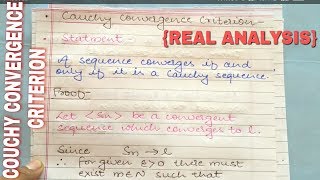 COUCHY CONVERGENCE
CRITERION
{REAL ANALYSIS}
• Cauchy Convergence Criterion:-
• Statment:-
A sequence converges if and
only if it is a Cauchy sequence.
Proof:-
Let <Sn> be a convergent
sequence which converges to l.
Since Sn → l
∴ for given ε>0 there must
exist m∈N such that